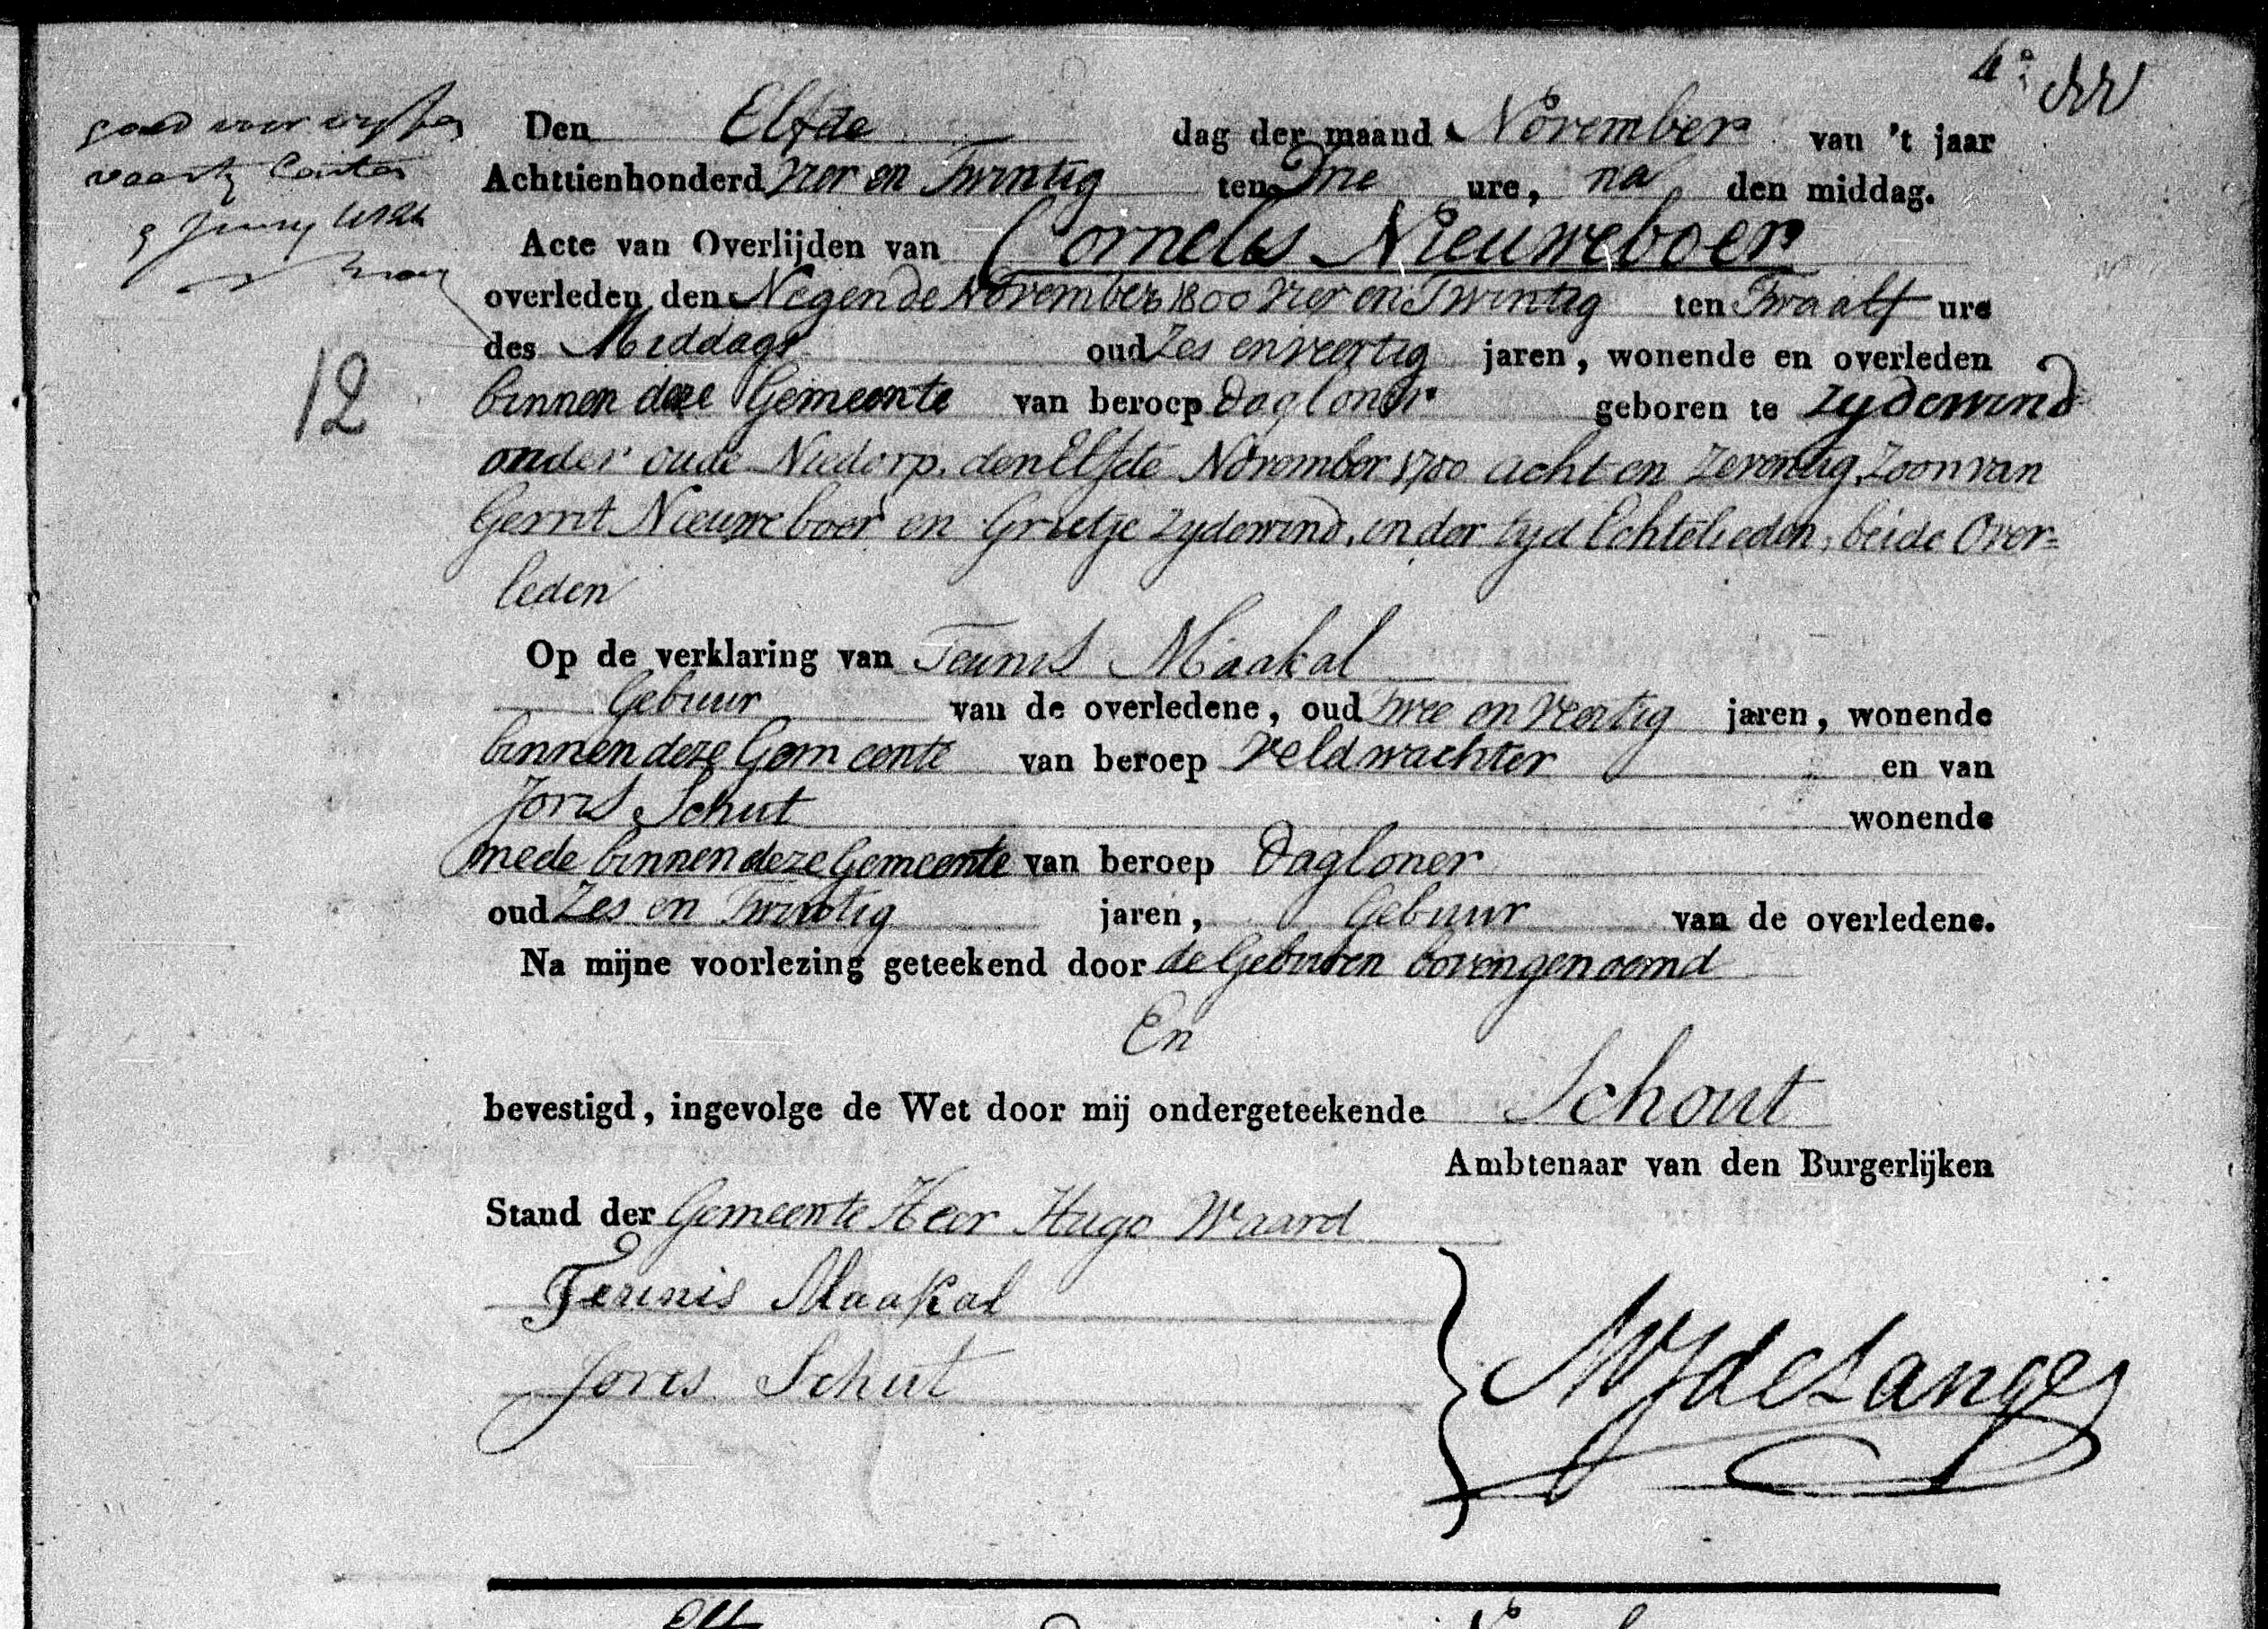 4e
Den Elfde dag der maand November van 't jaar
goed voor
Achttienhonderd Vier en Twintig ten Drie ure, na den middag.
Acte van Overlijden van Cornelis Nieuweboer
overleden den Negende November 1800 Vier en Twintig ten Twaalf ure
des Middags oud Zes en veertig jaren, wonende en overleden
12
binnen deze Gemeente van beroep Dagloner geboren te Zydewind
onder oude Niedorp. den Elfde November 1700 acht en Zeventig, Zoon van
Gerrit Nieuweboer en Grietje Zydewind, in der tyd Echtelieden, beide Over=
leden
Op de verklaring van Teunis Maakal
Gebuur van de overledene, oud Twee en Veertig jaren, wonende
binnen deze Gemeente van beroep Veldwachter en van
Joris Schut wonende
mede binnen deze Gemeente van beroep Dagloner
oud Zes en Twintig jaren, Gebuur van de overledene.
Na mijne voorlezing geteekend door de Geburen bovengenoemd
En
bevestigd, ingevolge de Wet door mij ondergeteekende Schout
Ambtenaar van den Burgerlijken
Stand der Gemeente Heer Hugo Waard
Teunis Maakal
Jores Schut
de Lange